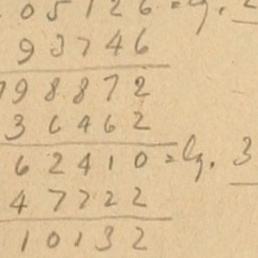 05126 = lg. 2
93746
98872
36462
62410 = lg. 3
47722
10132